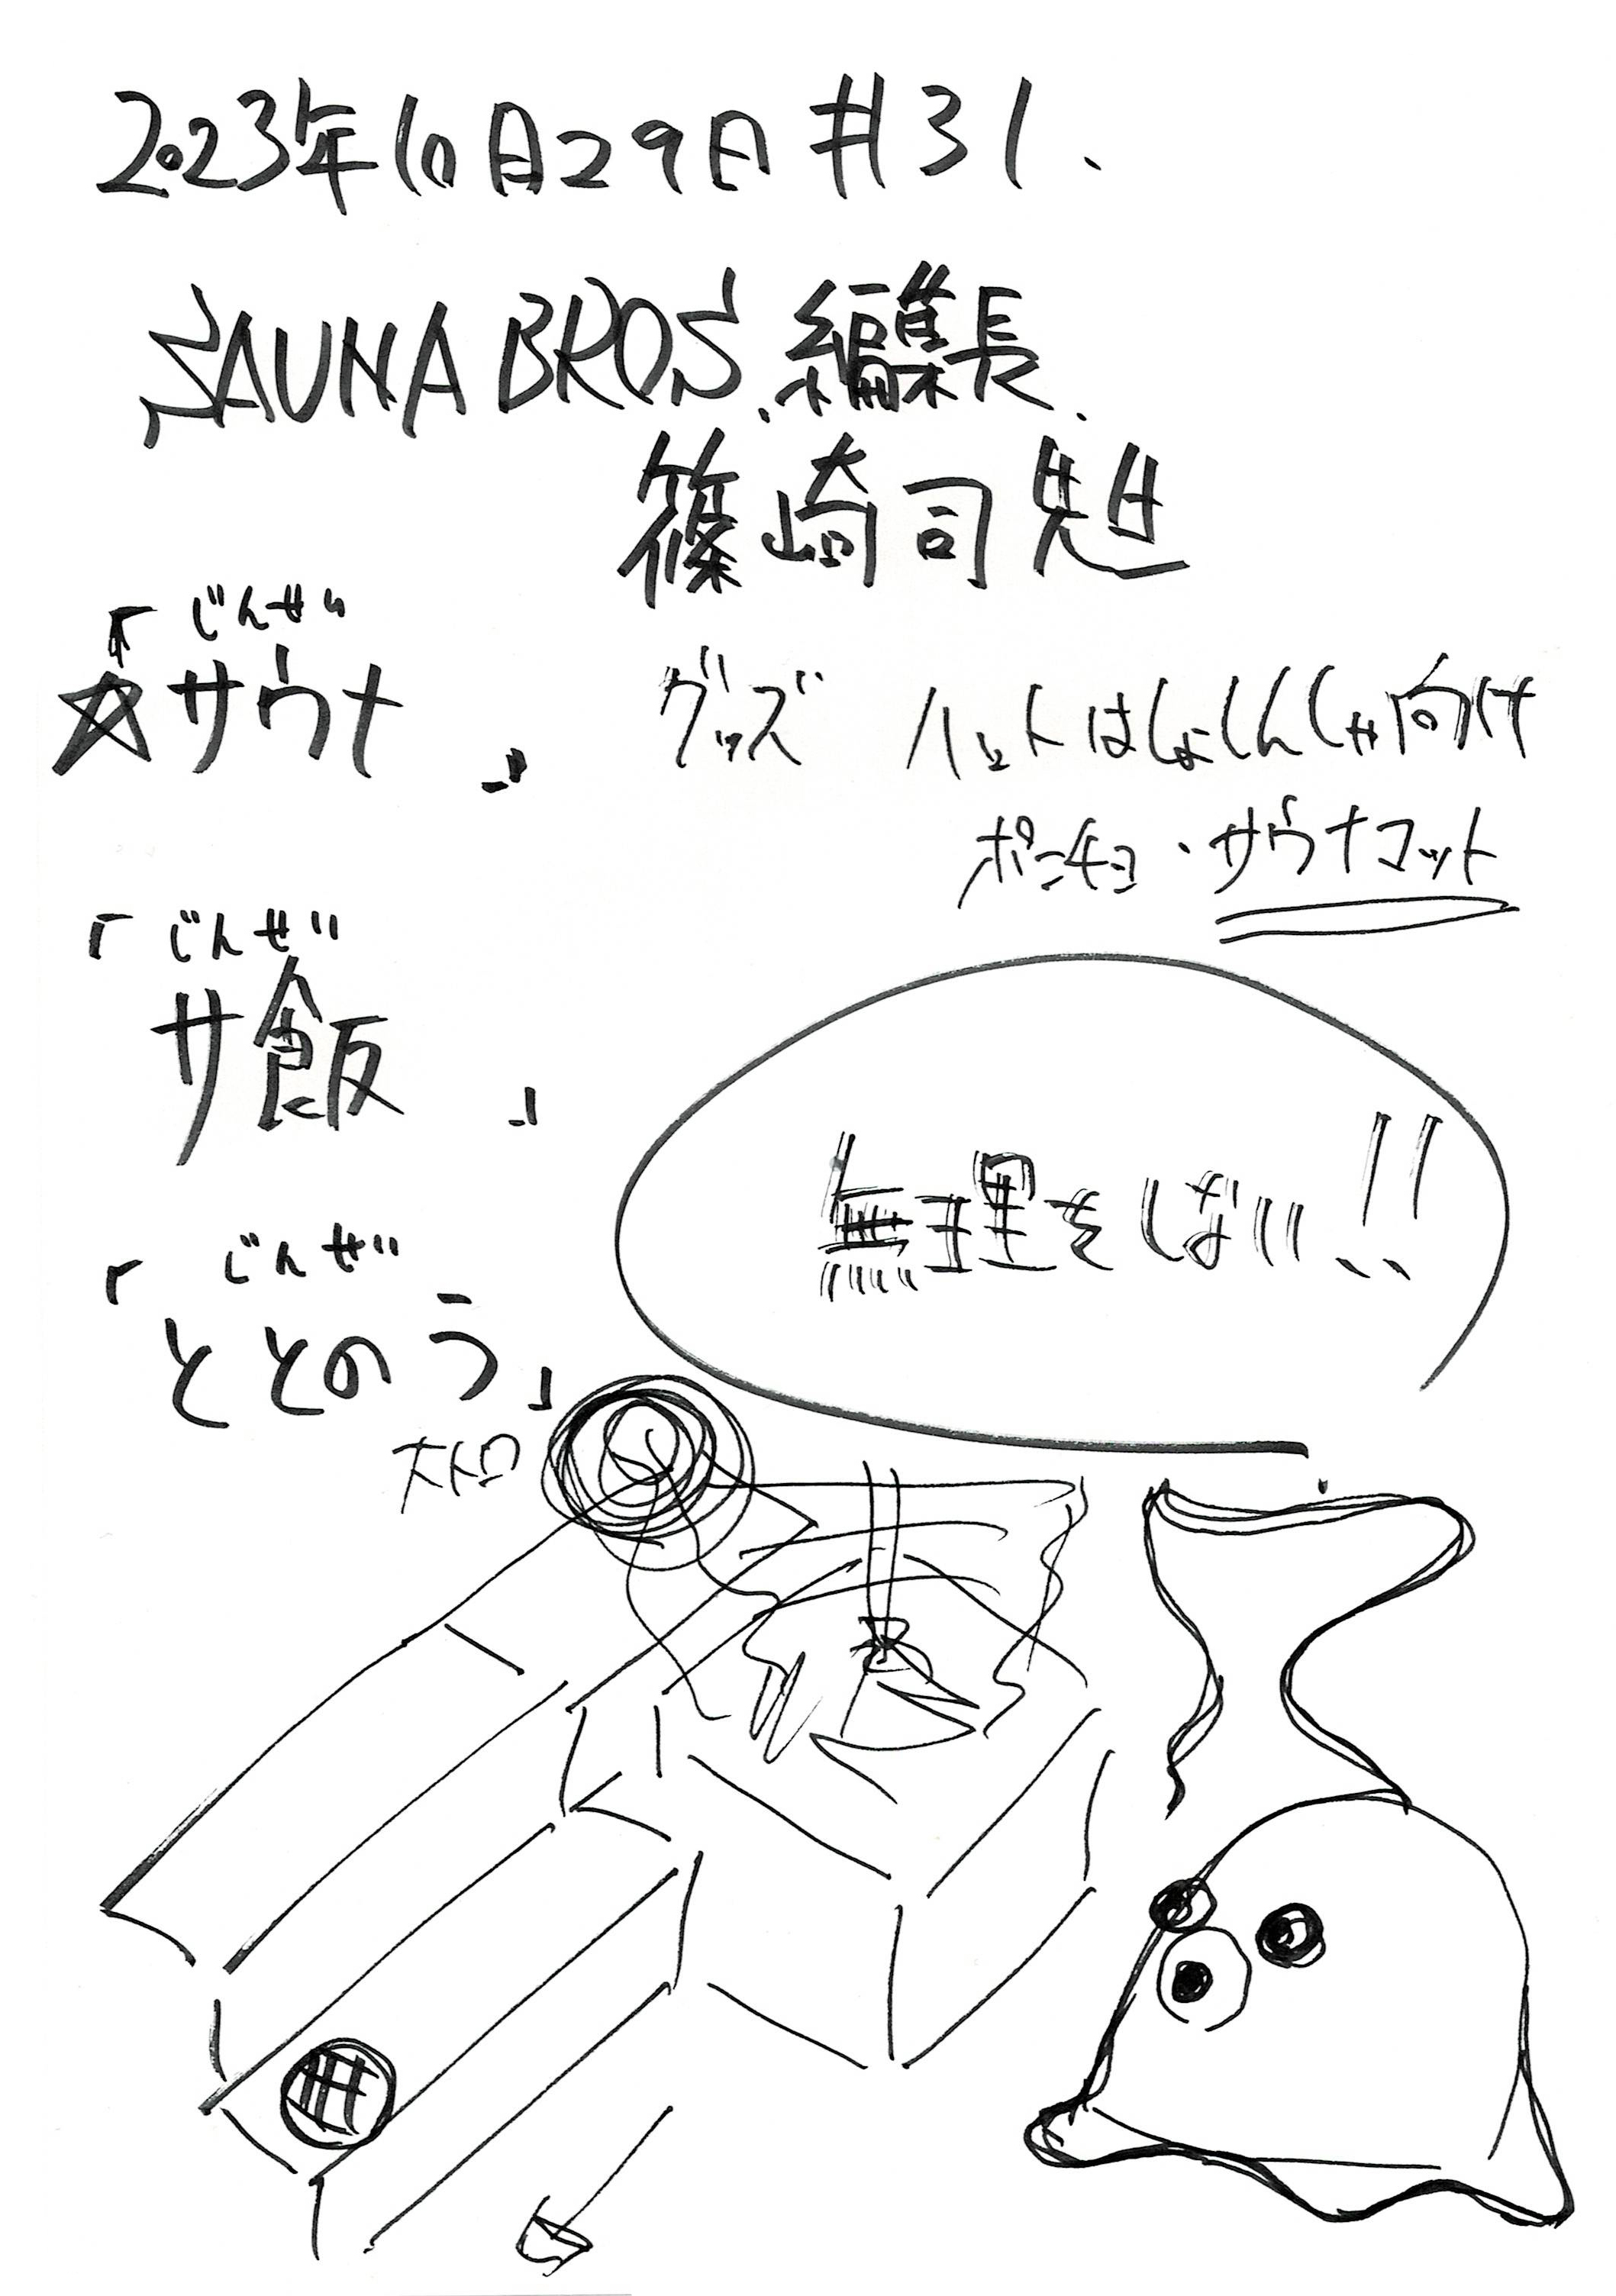 2023年10月29日 #31.
SAUNA BROS.編集長.
篠崎司先生
「じんせい
☆サウナ」
グッズ ハットはしょしんしゃ向け
ポンチョ・サウナコット
「じんせい
サ飯」
無理をしない!!
「じんせい
ととのう」